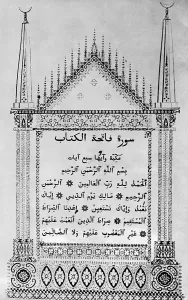 سورة فاتحة الكتاب
مكية وآيها سبع آيات
بِسْمِ اللَّهِ الرَّحْمَٰنِ الرَّحِيمِ
الْحَمْدُ لِلَّهِ رَبِّ الْعَالَمِينَ ۞ الرَّحْمَٰنِ
الرَّحِيمِ ۞ مَالِكِ يَوْمِ الدِّينِ ۞ إِيَّاكَ
نَعْبُدُ وَإِيَّاكَ نَسْتَعِينُ ۞ اهْدِنَا الصِّرَاطَ
الْمُسْتَقِيمَ ۞ صِرَاطَ الَّذِينَ أَنْعَمْتَ عَلَيْهِمْ
۞ غَيْرِ الْمَغْضُوبِ عَلَيْهِمْ وَلَا الضَّالِّينَ